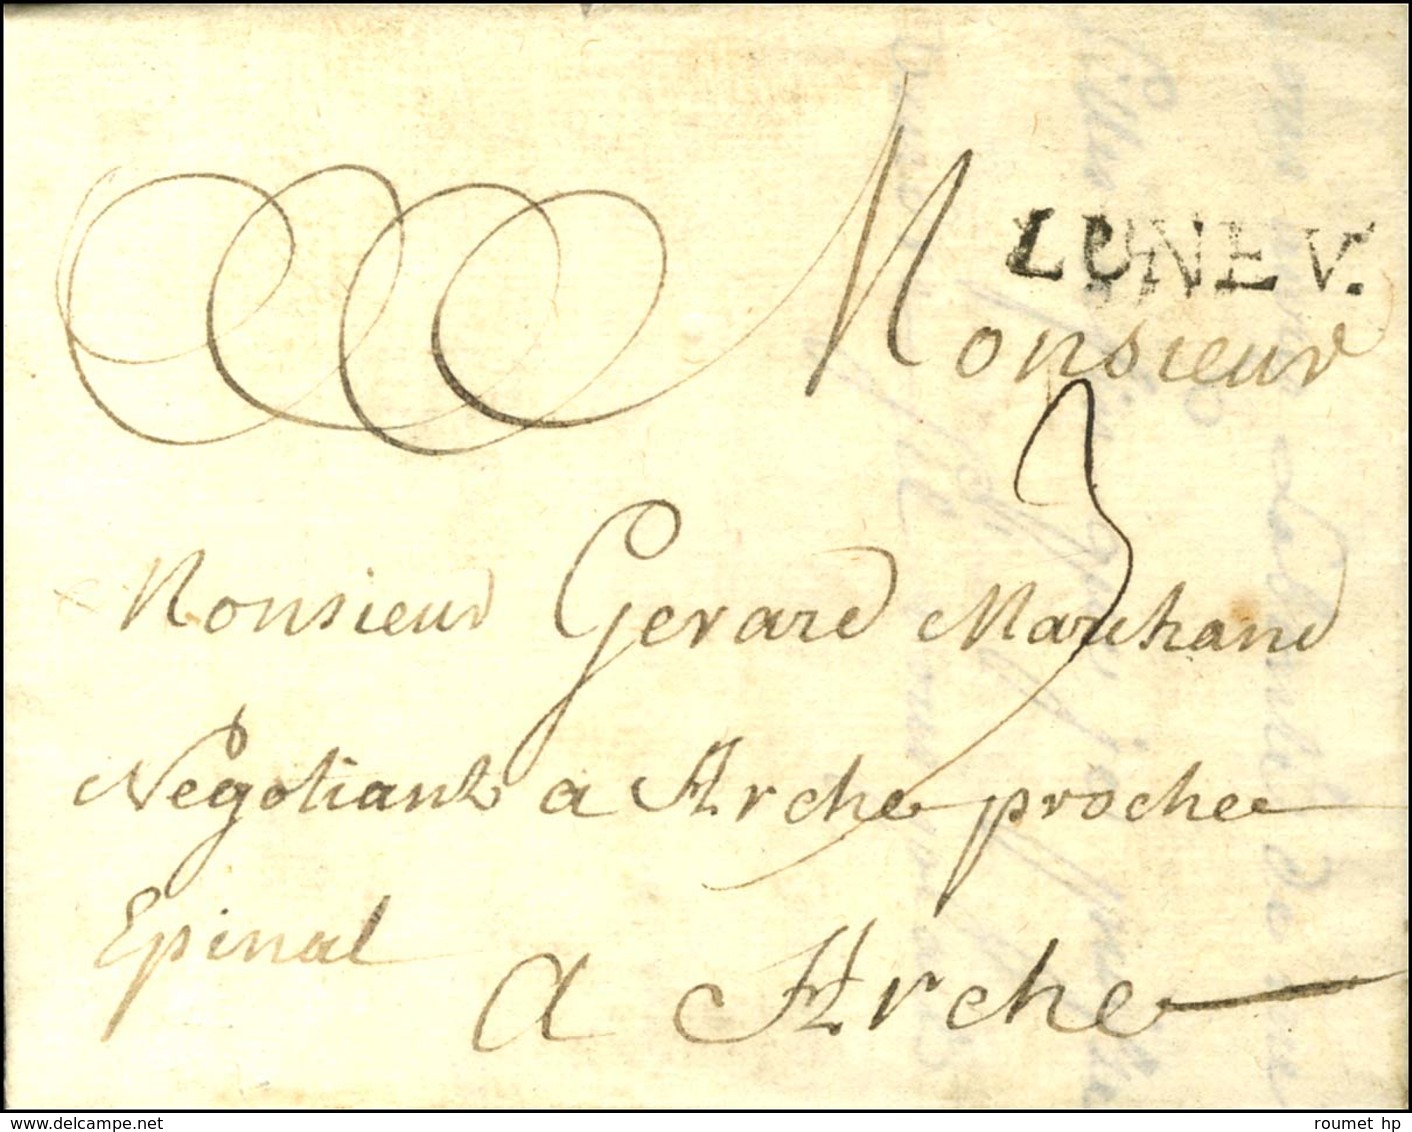 LUNEV.
Monsieur
3
Monsieur Gerard Marchand
Negotiant a Arche proche
Epinal
a Arche
roumet hp